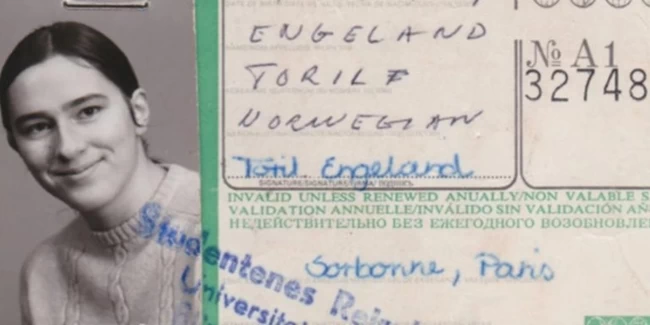 ENGELAND
TORILF
NORWEGIAN
№ A1
32748
Toril Engeland
SIGNATURE/SIGNATURE/FIRMA/подпись
INVALID UNLESS RENEWED ANUALLY/NON VALABLE S
VALIDATION ANNUELLE/INVÁLIDO SIN VALIDACIÓN AÑ
НЕДЕЙСТВИТЕЛЬНО БЕЗ ЕЖЕГОДНОГО ВОЗОБНОВЛЕ
Sorbonne, Paris
Studentenes Rei
Universit